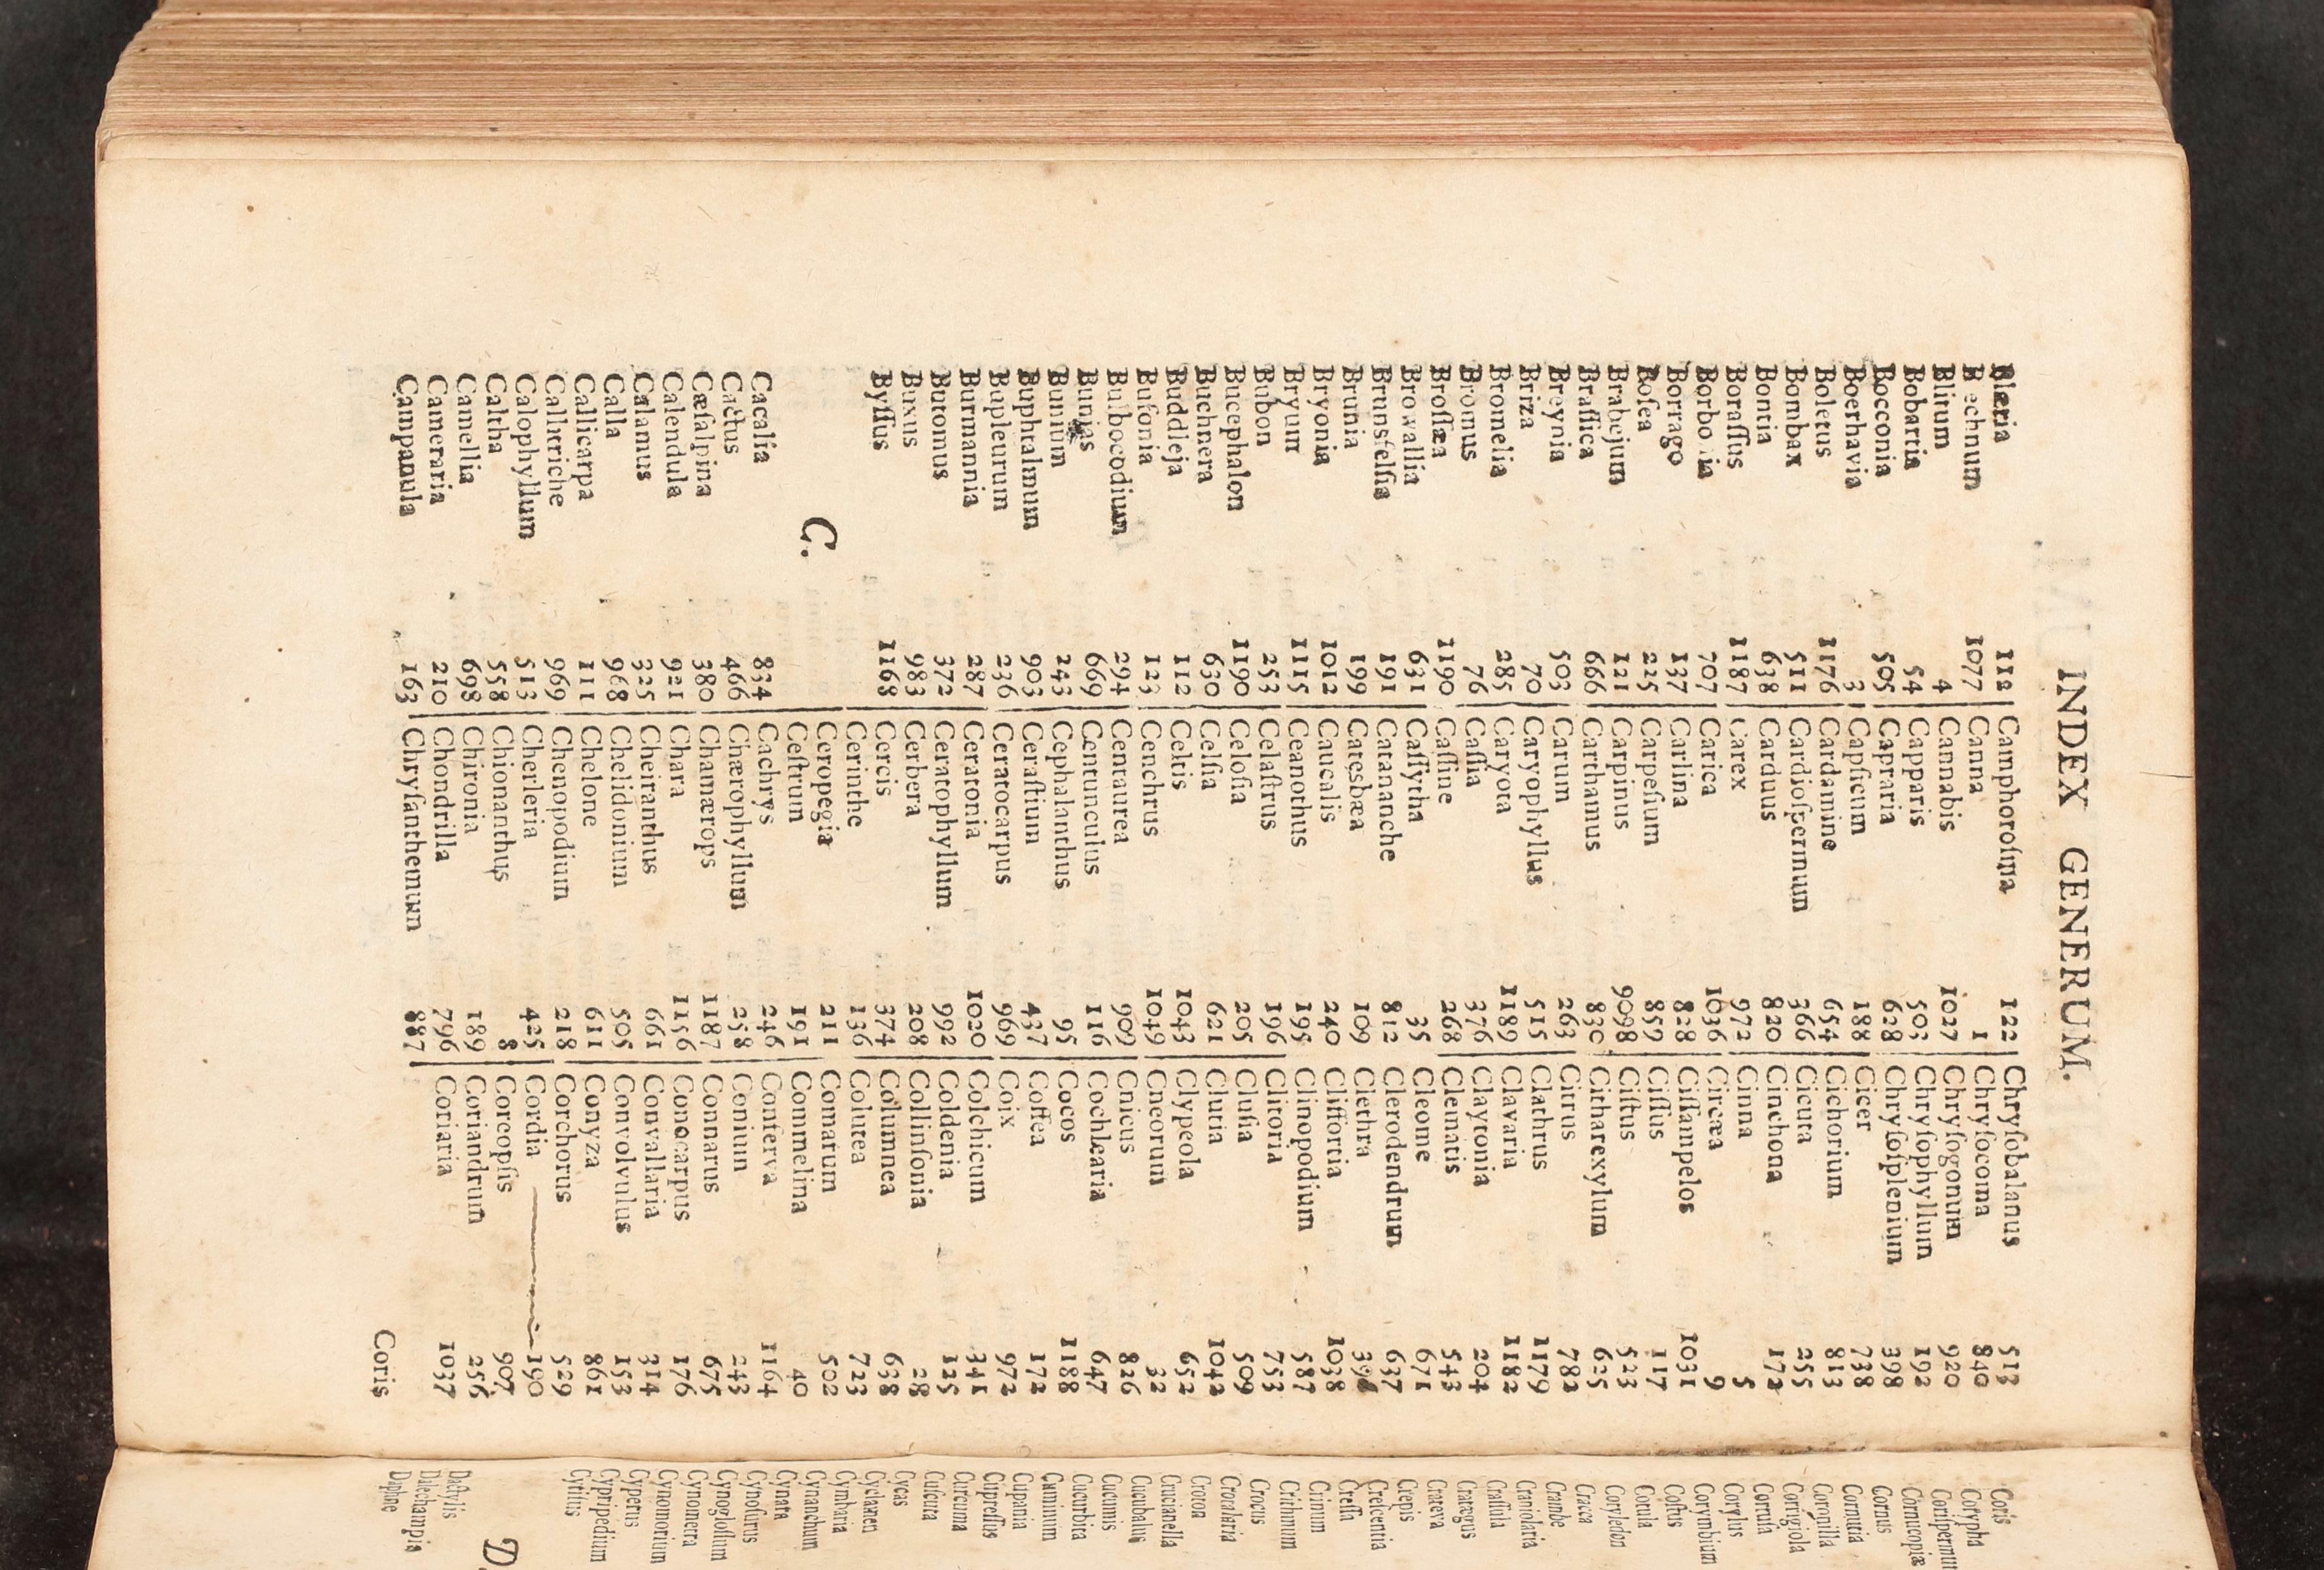 INDEX GENERUM.
Blæria 112
Blechnum 1077
Blitum 4
Bobartia 54
Bocconia 505
Boerhavia 3
Boletus 1176
Bombax 511
Bontia 638
Boraſſus 1187
Borbonia 707
Borrago 137
Boſea 225
Brabejum 121
Braſſica 666
Breynia 503
Briza 70
Bromelia 285
Bromus 76
Broſſæa 1190
Browallia 631
Brunsfelſia 191
Brunia 199
Bryonia 1012
Bryum 1115
Bubon 253
Bucephalon 1190
Buchnera 630
Buddleja 112
Bufonia 123
Bulbocodium 294
Bunias 669
Bunium 243
Buphtalmum 903
Bupleurum 236
Burmannia 287
Butomus 372
Buxus 983
Byſſus 1168
C.
Cacalia 834
Cactus 466
Cæſalpina 380
Calendula 921
Calamus 325
Calla 968
Callicarpa 111
Callitriche 969
Calophyllum 513
Caltha 558
Camellia 698
Cameraria 210
Campanula 163
Camphoroſma 122
Canna 1
Cannabis 1027
Capparis 503
Capraria 628
Capſicum 188
Cardamine 654
Cardioſpermum 366
Carduus 820
Carex 972
Carica 1036
Carlina 828
Carpeſium 859
Carpinus 9098
Carthamus 830
Carum 263
Caryophyllus 515
Caryota 1189
Caſſia 376
Caſſine 268
Caſſytha 35
Catananche 812
Catesbæa 109
Caucalis 240
Ceanothus 195
Celaſtrus 196
Celoſia 205
Celſia 621
Celtis 1043
Cenchrus 1049
Centaurea 909
Centunculus 116
Cephalanthus 95
Ceraſtium 437
Ceratocarpus 969
Ceratonia 1020
Ceratophyllum 992
Cerbera 208
Cercis 374
Cerinthe 136
Ceropegia 211
Ceſtrum 191
Cachrys 246
Chærophyllum 258
Chamærops 1187
Chara 1156
Cheiranthus 661
Chelidonium 505
Chelone 611
Chenopodium 218
Cherleria 425
Chionanthus 8
Chironia 189
Chondrilla 796
Chryſanthemum 887
Chryſobalanus 513
Chryſocoma 840
Chryſogonum 920
Chryſophyllum 192
Chryſoſplenium 398
Cicer 738
Cichorium 813
Cicuta 255
Cinchona 172
Cinna 5
Circæa 9
Ciſſampelos 1031
Ciſſus 117
Ciſtus 523
Citharexylum 625
Citrus 782
Clathrus 1179
Clavaria 1182
Claytonia 204
Clematis 543
Cleome 671
Clerodendrum 637
Clethra
Cliffortia 1038
Clinopodium 587
Clitoria 753
Cluſia 509
Clutia 1042
Clypeola 652
Cneorum 32
Cnicus 826
Cochlearia 647
Cocos 1188
Coffea 172
Coix 972
Colchicum 341
Coldenia 125
Collinſonia 28
Columnea 638
Colutea 723
Comarum 502
Commelina 40
Conferva 1164
Conium 243
Connarus 675
Conocarpus 176
Convallaria 314
Convolvulus 153
Conyza 861
Corchorus 529
Cordia 190
Coreopſis 907
Coriandrum 256
Coriaria 1037
Coris
Coris
Corypha
Coriſpermum
Cornucopiæ
Cornus
Cornutia
Coronilla
Corrigiola
Cortuſa
Corylus
Corymbium
Coſtus
Cotula
Cotyledon
Cracca
Crambe
Craniolaria
Craſſula
Cratægus
Crateva
Crepis
Creſcentia
Creſſa
Crinum
Crithmum
Crocus
Crotalaria
Croton
Crucianella
Cucubalus
Cucumis
Cucurbita
Cuminum
Cupania
Cupreſſus
Curcuma
Cuſcuta
Cycas
Cyclamen
Cymbaria
Cynanchum
Cynara
Cynoſurus
Cynogloſſum
Cynometra
Cynomorium
Cyperus
Cypripedium
Cytiſus
D.
Dactylis
Dalechampia
Daphne